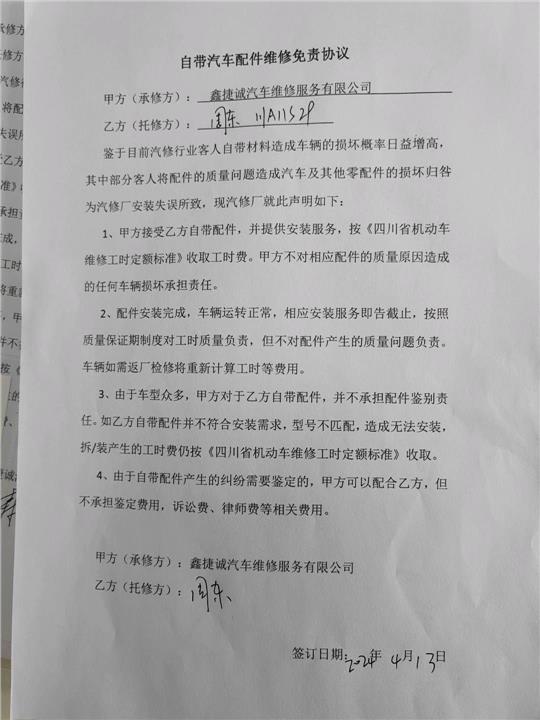 自带汽车配件维修免责协议
甲方（承修方）： 鑫捷诚汽车维修服务有限公司
乙方（托修方）： 周东 川A11S29
鉴于目前汽修行业客人自带材料造成车辆的损坏概率日益增高，
其中部分客人将配件的质量问题造成汽车及其他零配件的损坏归咎
为汽修厂安装失误所致，现汽修厂就此声明如下：
1、甲方接受乙方自带配件，并提供安装服务，按《四川省机动车
维修工时定额标准》收取工时费。甲方不对相应配件的质量原因造成
的任何车辆损坏承担责任。
2、配件安装完成，车辆运转正常，相应安装服务即告截止，按照
质量保证期制度对工时质量负责，但不对配件产生的质量问题负责。
车辆如需返厂检修将重新计算工时等费用。
3、由于车型众多，甲方对于乙方自带配件，并不承担配件鉴别责
任。如乙方自带配件并不符合安装需求，型号不匹配，造成无法安装，
拆/装产生的工时费仍按《四川省机动车维修工时定额标准》收取。
4、由于自带配件产生的纠纷需要鉴定的，甲方可以配合乙方，但
不承担鉴定费用，诉讼费、律师费等相关费用。
甲方（承修方）：鑫捷诚汽车维修服务有限公司
乙方（托修方）：周东
签订日期：2024年 4月13日